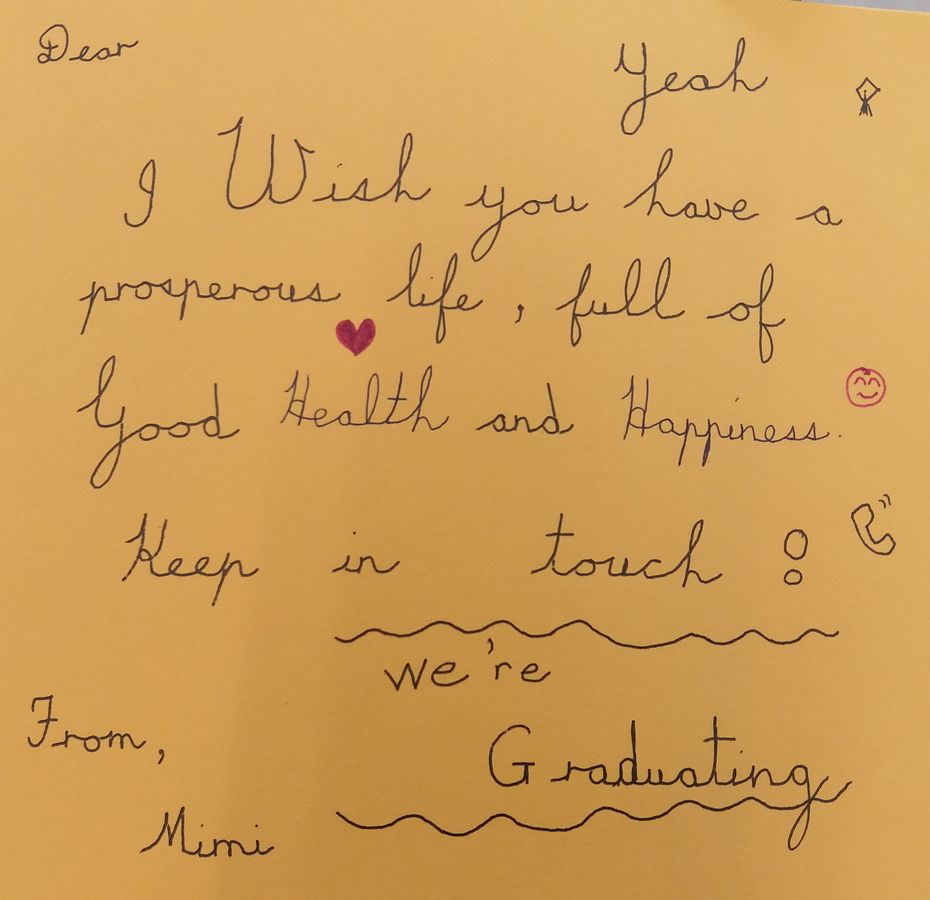 Dear
Yeah
I Wish you have a
prosperous life, full of
Good Health and Happiness.
Keep in touch!
we're
Graduating
From,
Mimi